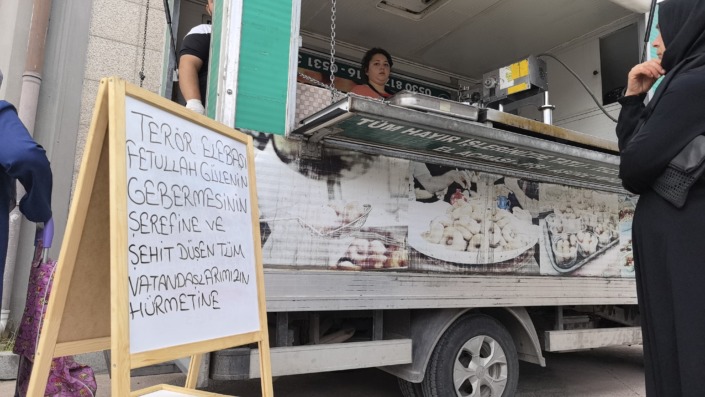 TERÖR ELEBAŞI
FETULLAH GÜLENİN
GEBERMESİNİN
ŞEREFİNE VE
ŞEHİT DÜŞEN TÜM
VATANDAŞLARIMIZIN
HÜRMETİNE
0530 81
16 - 0531
TÜM HAYIR İŞLERİNİZDE